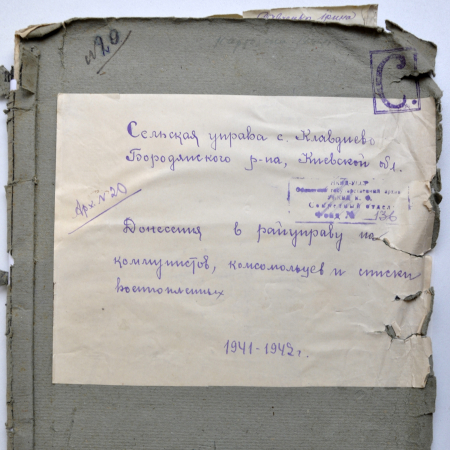 №20
С.
Сельская управа с. Клавдиево
Бородянского р-на, Киевской обл.
Арх. №20
Секретный отдел
Фонд № 136
Донесения в райуправу на
коммунистов, комсомольцев и списки
военнопленных
1941-1942 г.